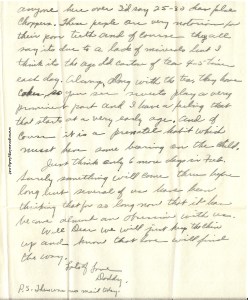 anyone here over I'd say 25-30 has false
choppers. These people are very notorious for
their poor teeth and of course they all
say its due to a lack of minerals but I
think its the age old custom of tea 4 & 5 times
each day. Along, along with the tea, they have
so you see sweets play a very
prominent part and I have a feeling that
that starts at a very early age. And of
course it is a prenatal habit which
must have some bearing on the child.
Just think only 6 more days in Feb.
Surely something will come thru before
long but several of us have been
thinking that for so long now that it has
become almost an obsession with us.
Well Dear we will just keep
up and know that love will find
the way.
Lots of Love
Daddy.
P.S. There was no mail today.